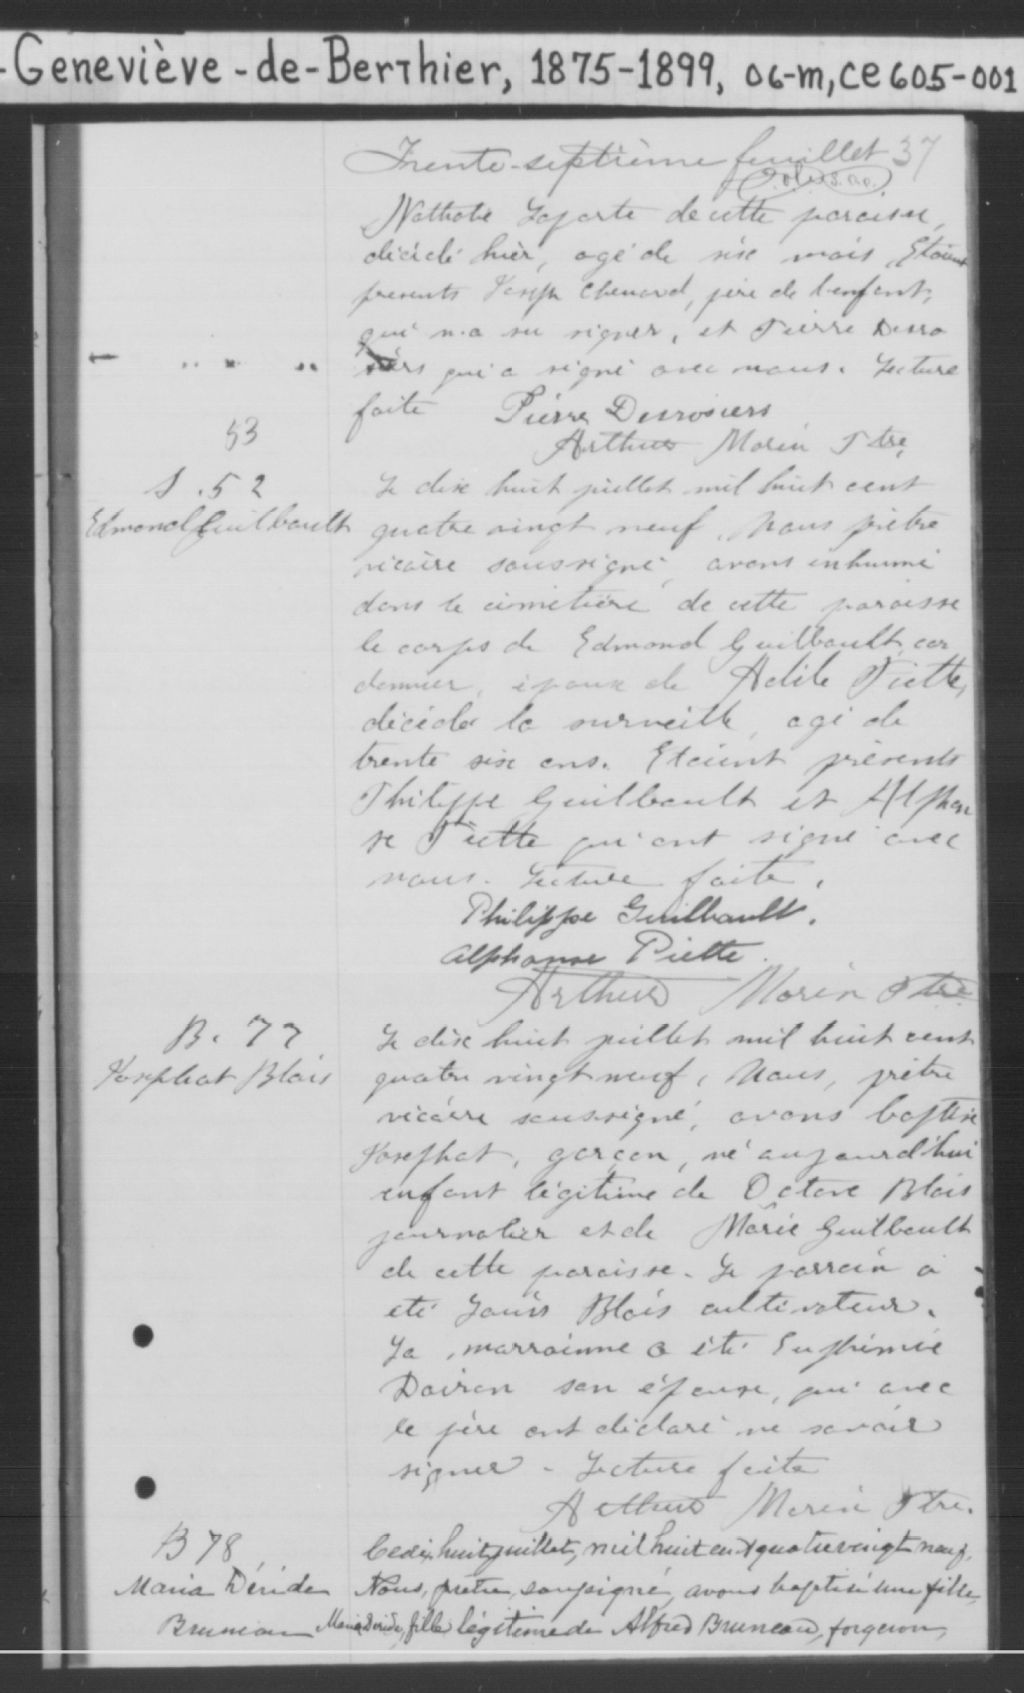 -Geneviève-de-Berthier, 1875-1899, 06-m, CE605-001
Trente-septième feuillet 37
Nathalie Laporte de cette paroisse,
décédé hier, agé de six mois. Etaient
presents Joseph Chenard, père de l'enfant,
qui n'a su signer, et Pierre Desro
siers qui a signé avec nous. Lecture
faite Pierre Desrosiers
Arthur Morin Ptre
53
S. 52
Edmond Guilbault
Le dix huit juillet mil huit cent
quatre vingt neuf, Nous prêtre
vicaire soussigné, avons inhumé
dans le cimetière de cette paroisse
le corps de Edmond Guilbault, cor
donnier, époux de Adile Piette,
décédé la surveille, agé de
trente six ans. Etaient présents
Philippe Guilbault et Alphon
se Piette qui ont signé avec
nous. Lecture faite.
Philippe Guilbault.
Alphonse Piette.
Arthur Morin Ptre
B. 77
Josephat Blais
Le dix huit juillet mil huit cent
quatre vingt neuf, Nous, prêtre
vicaire soussigné, avons baptisé
Josephat, garçon, né aujourd'hui
enfant légitime de Octave Blais
journalier et de Marie Guilbault
de cette paroisse. Le parrain a
été Louis Blais cultivateur.
La marrainne a été Euphémie
Doiron son épouse, qui avec
le père ont déclaré ne savoir
signer. Lecture faite
Arthur Morin Ptre.
B 78
Maria Déride
Bruneau
Le dix huit juillet, mil huit cent quatre vingt neuf,
Nous, prêtre, soussigné, avons baptisé une fille,
Maria Déride, fille légitime de Alfred Bruneau, forgeron,